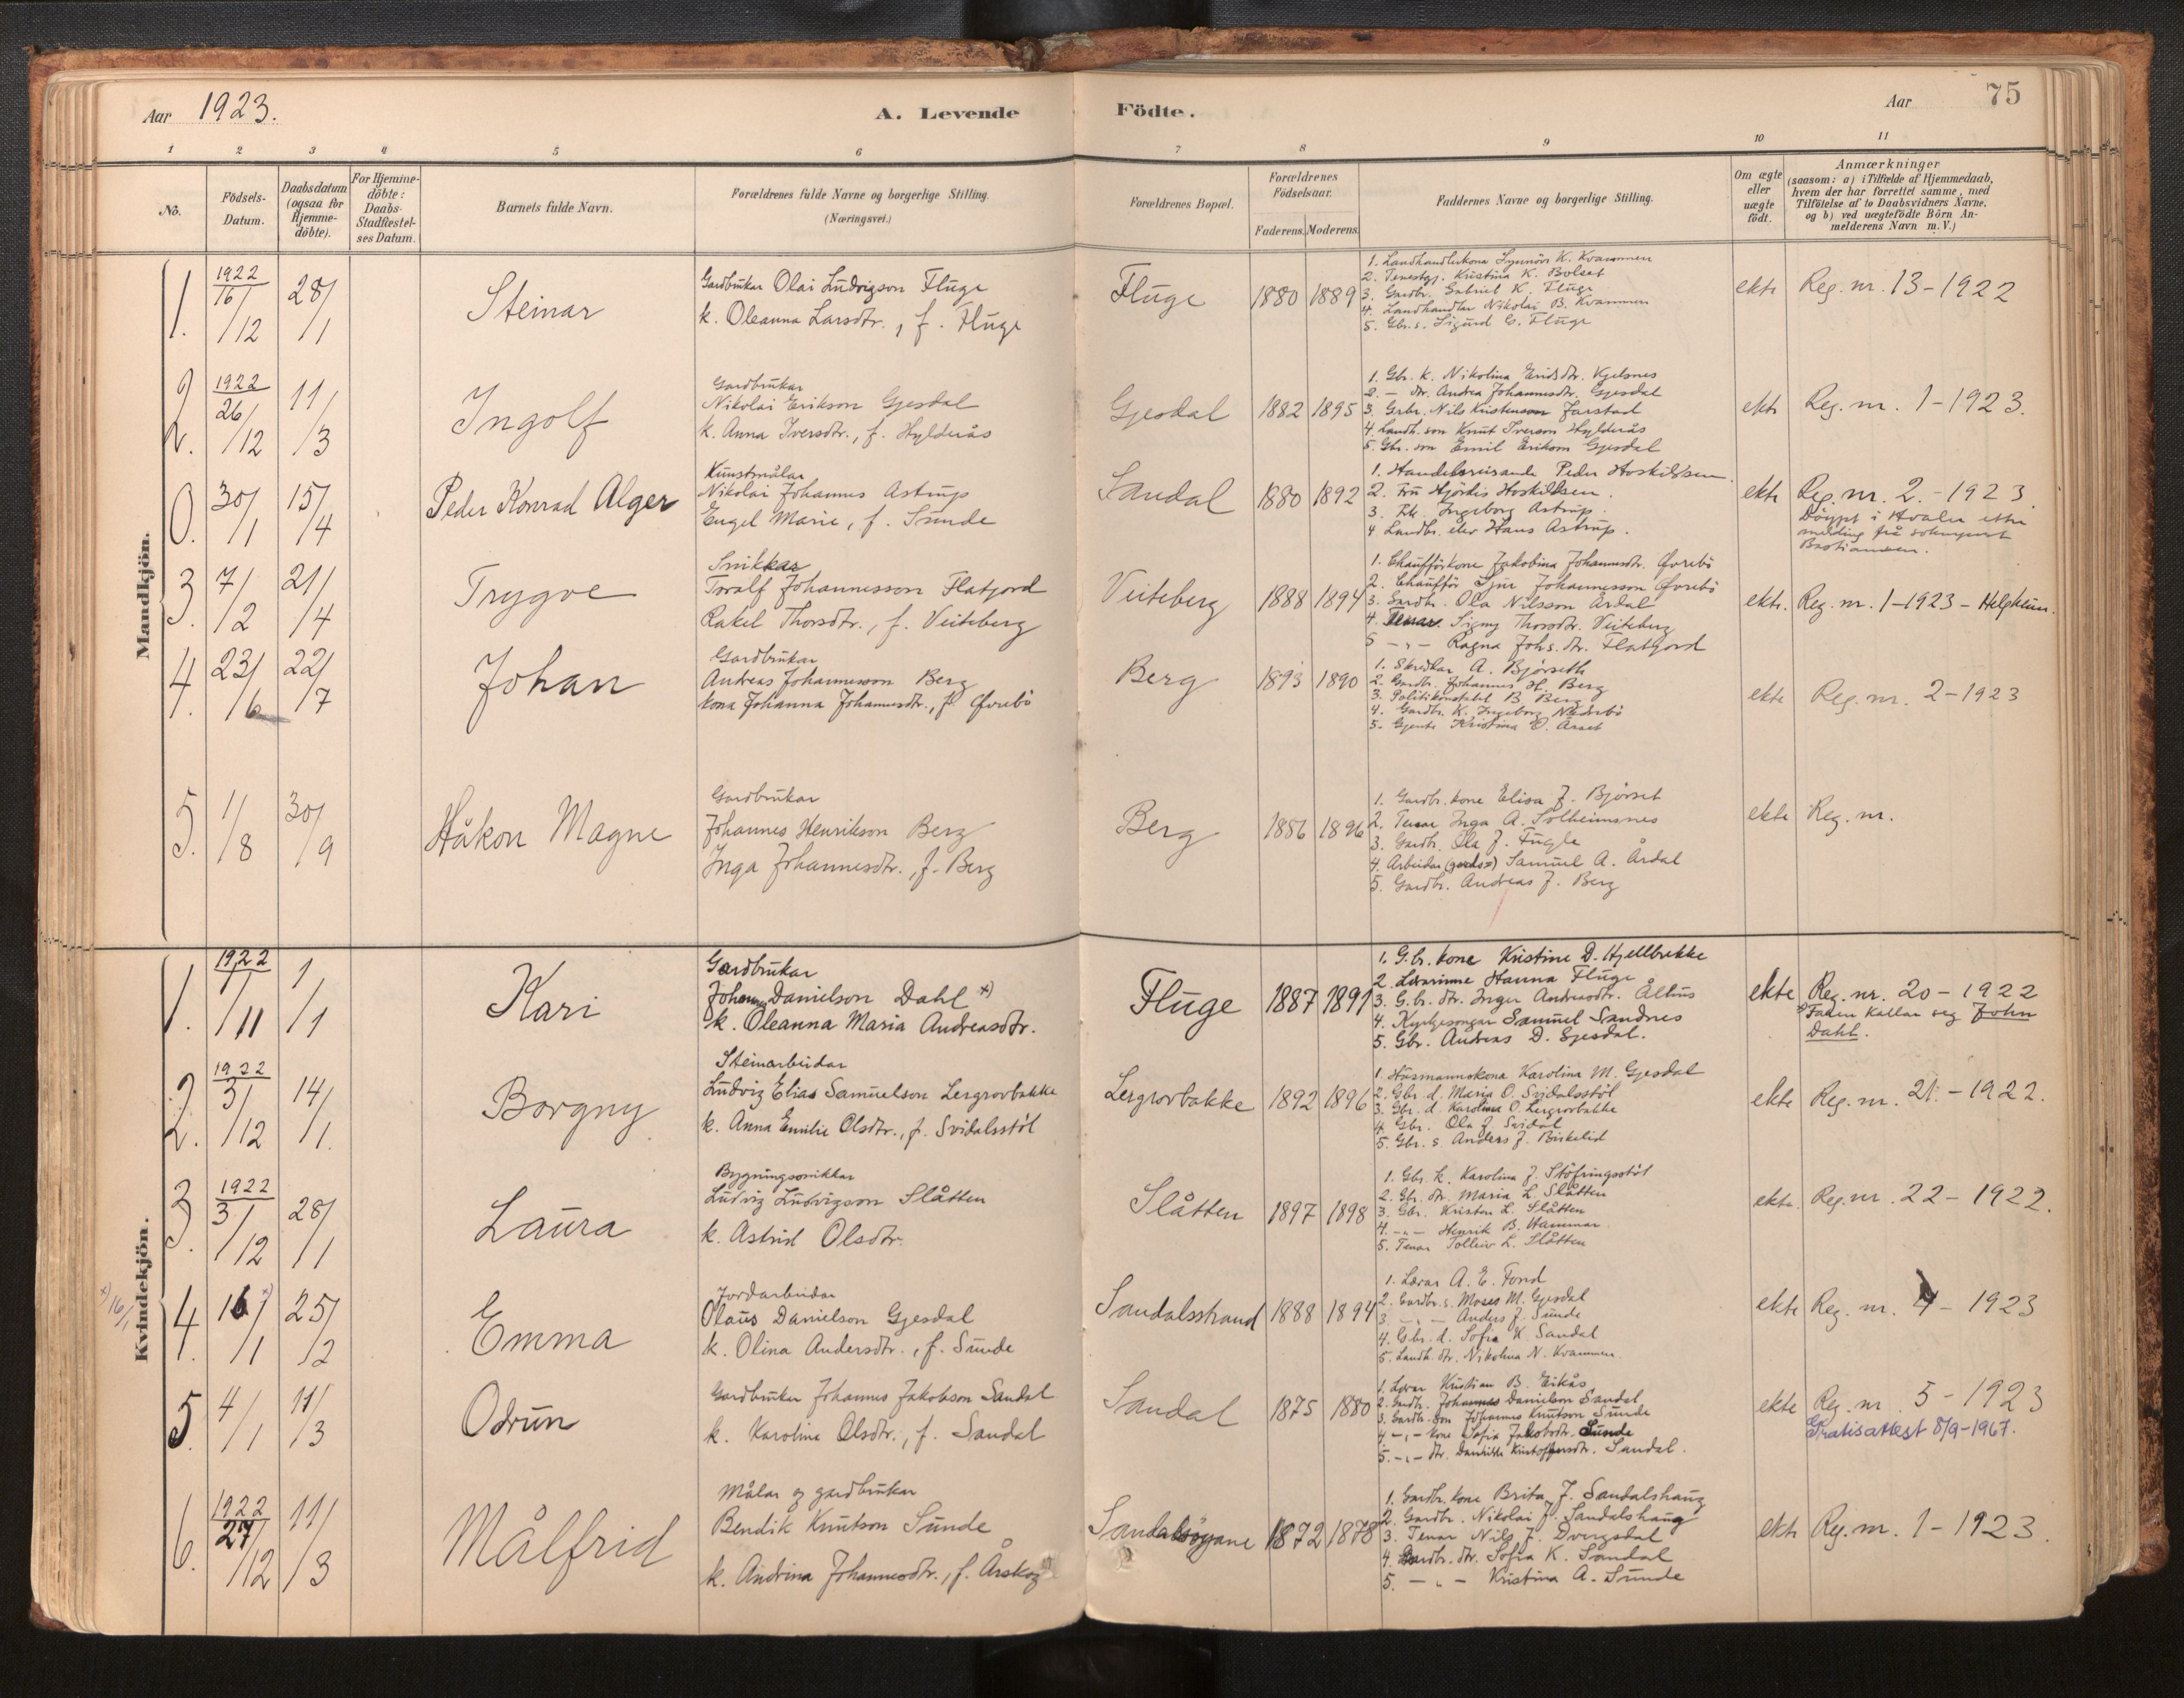 Aar 1923.
A. Levende
Födte.
Aar
75
1 2 3 4 5 6 7 8 9 10 11
No.
Födsels-Datum.
Daabsdatum (ogsaa for Hjemme-döbte).
For Hjemme-döbte: Daabs-Stadfæstel-ses Datum.
Barnets fulde Navn.
Forældrenes fulde Navne og borgerlige Stilling.
(Næringsvei.)
Forældrenes Bopæl.
Forældrenes Födselsaar.
Faderens. Moderens.
Faddernes Navne og borgerlige Stilling.
Om ægte eller uægte födt.
Anmærkninger
(saasom: a) i Tilfælde af Hjemmedaab,
hvem der har forrettet samme, med
Tilföielse af to Daabsvidners Navne,
og b) ved uægtefödte Börn An-
melderens Navn m. V.)
Mandkjön.
1. 1922 16/12 28/1
Steinar
Gardbrukar Olai Ludvigson Fluge
k. Oleanna Larsdtr., f. Fluge
Fluge
1880 1889
1. Landhandlarkona Synnöv K. Kvammen
2. Tenestgj. Kristina K. Bolset
3. Gardbr. Gabriel K. Fluge
4. Landhandlar Nikolai B. Kvammen
5. Gbr.s. Sigurd G. Fluge
ekte
Reg. nr. 13-1922
2. 1922 26/12 11/3
Ingolf
Gardbrukar
Nikolai Erikson Gjesdal
k. Anna Iversdtr., f. Hylderås
Gjesdal
1882 1895
1. Gbr. k. Nikolina Eriksdtr. Kjelsnes
2. - dtr. Andrea Johannesdtr. Gjesdal
3. Grbr. Nils Kristenson Farstad
4. Landh. son Knut Iverson Hylderås
5. Gbr. son Emil Erikson Gjesdal
ekte
Reg. nr. 1-1923.
0. 30/1 15/4
Peder Konrad Alger
Kunstmålar
Nikolai Johannes Astrup
Engel Marie, f. Sunde
Sandal
1880 1892
1. Handelsreisande Peder Hoskildsen.
2. Fru Hjördis Hoskildsen.
3. Frk. Ingeborg Astrup.
4 Landbr. elev Hans Astrup.
ekte
Reg. nr. 2.-1923
Döypt i Hvaler etter
melding frå sokneprest
Bastiansen.
3. 7/2 21/4
Trygve
Snikkar
Toralf Johannesson Flatjord
Rakel Thorsdtr., f. Veiteberg
Veiteberg
1888 1894
1. Chaufförkone Jakobina Johannesdtr. Övrebö
2. Chaufför Sjur Johannesson Övrebö
3. Gardbr. Ola Nilsson Årdal
4. Tenar. Signy Thorsdtr. Veiteberg
5 -,- Ragna Johs.dtr. Flatjord
ekte.
Reg. nr. 1-1923 - Helgheim.
4. 23/6 22/7
Johan
Gardbrukar
Andreas Johannesson Berg
kona Johanna Johannesdtr., f. Övrebö
Berg
1893 1890
1. Skreddar A. Björseth
2. Gardbr. Johannes H. Berg
3. Politikonstabel B. Berg
4. Gardbr. K. Ingeborg Nedrebö
5. Gjente Kristina O. Årset
ekte
Reg. nr. 2-1923
5. 1/8 30/9
Håkon Magne
Gardbrukar
Johannes Henrikson Berg
Inga Johannesdtr., f. Berg
Berg
1886 1896
1. Gardbr. kone Elisa J. Björset
2. Tenar Inga A. Solheimsnes
3. Gardbr. Ola J. Fugle
4. Arbeidar (gards=) Samuel A. Årdal
5. Gardbr. Andreas J. Berg
ekte
Reg. nr.
Kvindekjön.
1. 1922 7/11 1/1
Kari
Gardbrukar
Johannes Danielson Dahl x)
k. Oleanna Maria Andreasdtr.
Fluge
1887 1891
1. G.br. kone Kristine D. Hjellbrekke
2. Lærarinne Hanna Fluge
3. G.br. dtr. Inger Andreasdtr. Ålhus
4. Kyrkjesongar Samuel Sandnes
5. Gbr. Andreas D. Gjesdal.
ekte
Reg. nr. 20-1922
x) Faden kallar seg John
Dahl.
2. 1922 3/12 14/1.
Borgny
Steinarbeidar
Ludvig Elias Samuelson Lergrovbakke
k. Anna Emilie Olsdtr., f. Svidalsstöl
Lergrovbakke
1892 1896
1. Husmannskona Karolina M. Gjesdal
2. Gbr. d. Maria O. Svidalsstöl
3. Gbr. d. Karolina O. Lergrovbakke
4. Gbr. Ola J. Svidal
5. Gbr. s Anders J. Birkelid
ekte
Reg. nr. 21.-1922.
3. 1922 3/12 28/1
Laura
Bygningssnikkar
Ludvig Ludvigson Slåtten
k. Astrid Olsdtr.
Slåtten
1897 1898
1. Gbr. k. Karolina J. Stöfringsstöl
2. Gbr. dtr. Maria L. Slåtten
3. Gbr. Kristen L. Slåtten
4. -"- Henrik B. Hammar
5. Tenar Tolleiv L. Slåtten
ekte.
Reg. nr. 22-1922.
x) 16/1
4. 16/1 x) 25/2
Emma
Jordarbeidar
Olaus Danielson Gjesdal
k. Olina Andersdtr., f. Sunde
Sandalsstrand
1888 1894
1. Lærar A. E. Fond
2. Gardbr. s. Moses M. Gjesdal
3. -,- Anders J. Sunde
4. Gbr. d. Sofia K. Sandal
5. Landh. dtr. Nikolina N. Kvammen.
ekte
Reg. nr. 4-1923
5. 4/1 11/3
Odrun
Gardbruker Johannes Jakobson Sandal
k. Karolina Olsdtr., f. Sandal
Sandal
1875 1880
1. Lærar Kristian B. Eikås
2. Gardbr. Johannes Danielson Sandal
3. Gardbr. son Johannes Knutson Sunde
4 -,- kone Sofia Jakobsdtr. Sunde
5. -,- dtr. Danielle Kristoffersdtr. Sandal.
ekte
Reg. nr. 5-1923
Gratisattest 8/9-1967.
6. 1922 27/12 11/3
Målfrid
Målar og gardbrukar
Bendik Knutson Sunde
k. Andrina Johannesdtr., f. Årskog
Sandalsöyane
1872 1878
1. Gardbr. kone Brita J. Sandalshaug
2. Gardbr. Nikolai J. Sandalshaug
3. Tenar Nils J. Dvergsdal
4. Gardbr. dtr. Sofia K. Sandal
5. -"- Kristina A. Sunde
ekte
Reg. nr. 1-1923